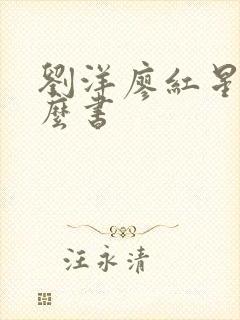 劉洋廖紅星
麼書
汪永清